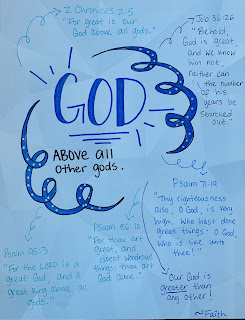 2 Chronicles 2:5
"For great is our
God above all gods."
Job 36:26
"Behold,
God is great,
and we know
him not,
neither can
the number
of his
years be
searched
out."
GOD
ABOVE all
other gods.
Psalm 71:19
"Thy righteousness
also, O God, is very
high, who hast done
great things: O God,
who is like unto
thee!"
Psalm 86:10
"For thou art
great, and
doest wondrous
things: thou art
God alone."
Psalm 95:3
"For the LORD is a
great God, and a
great King above all
gods."
Our God is
greater than
any other!
~Faith